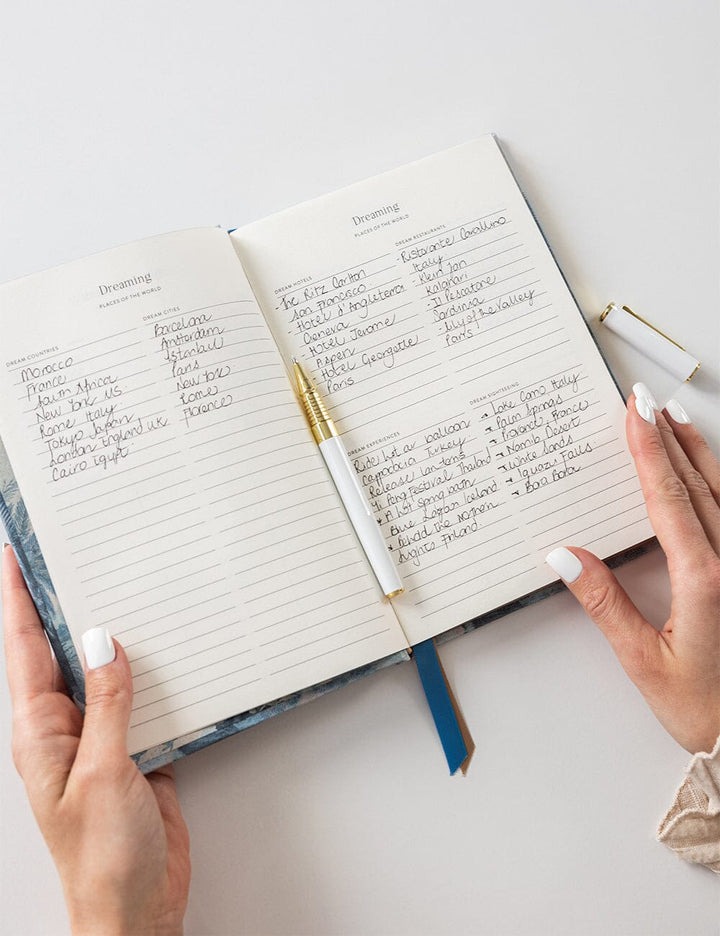 Dreaming
PLACES OF THE WORLD
DREAM COUNTRIES
Morocco
France
South Africa
New York U.S.
Rome Italy
Tokyo Japan
London England U.K
Cairo Egypt
DREAM CITIES
Barcelona
Amsterdam
Istanbul
Paris
New York
Rome
Florence
Dreaming
PLACES OF THE WORLD
DREAM HOTELS
- The Ritz Carlton
San Francisco
- Hotel d'Angleterre
Geneva
- Hotel Jerome
Aspen
- Hotel Georgette
Paris
DREAM RESTAURANTS
- Ristorante Cavallino
Italy
- Klein Jan
Kalahari
- Il Pescatore
Sardinia
- Lily of the Valley
Paris
DREAM EXPERIENCES
Ride hot air balloon
Cappadocia Turkey
Release lanterns
Yi Peng Festival Thailand
A hot spring swim
Blue Lagoon Iceland
Behold the northern
lights Finland
DREAM SIGHTSEEING
Lake Como Italy
Palm Springs
Provence, France
Namib Desert
White Sands
Iguazu Falls
Bora Bora